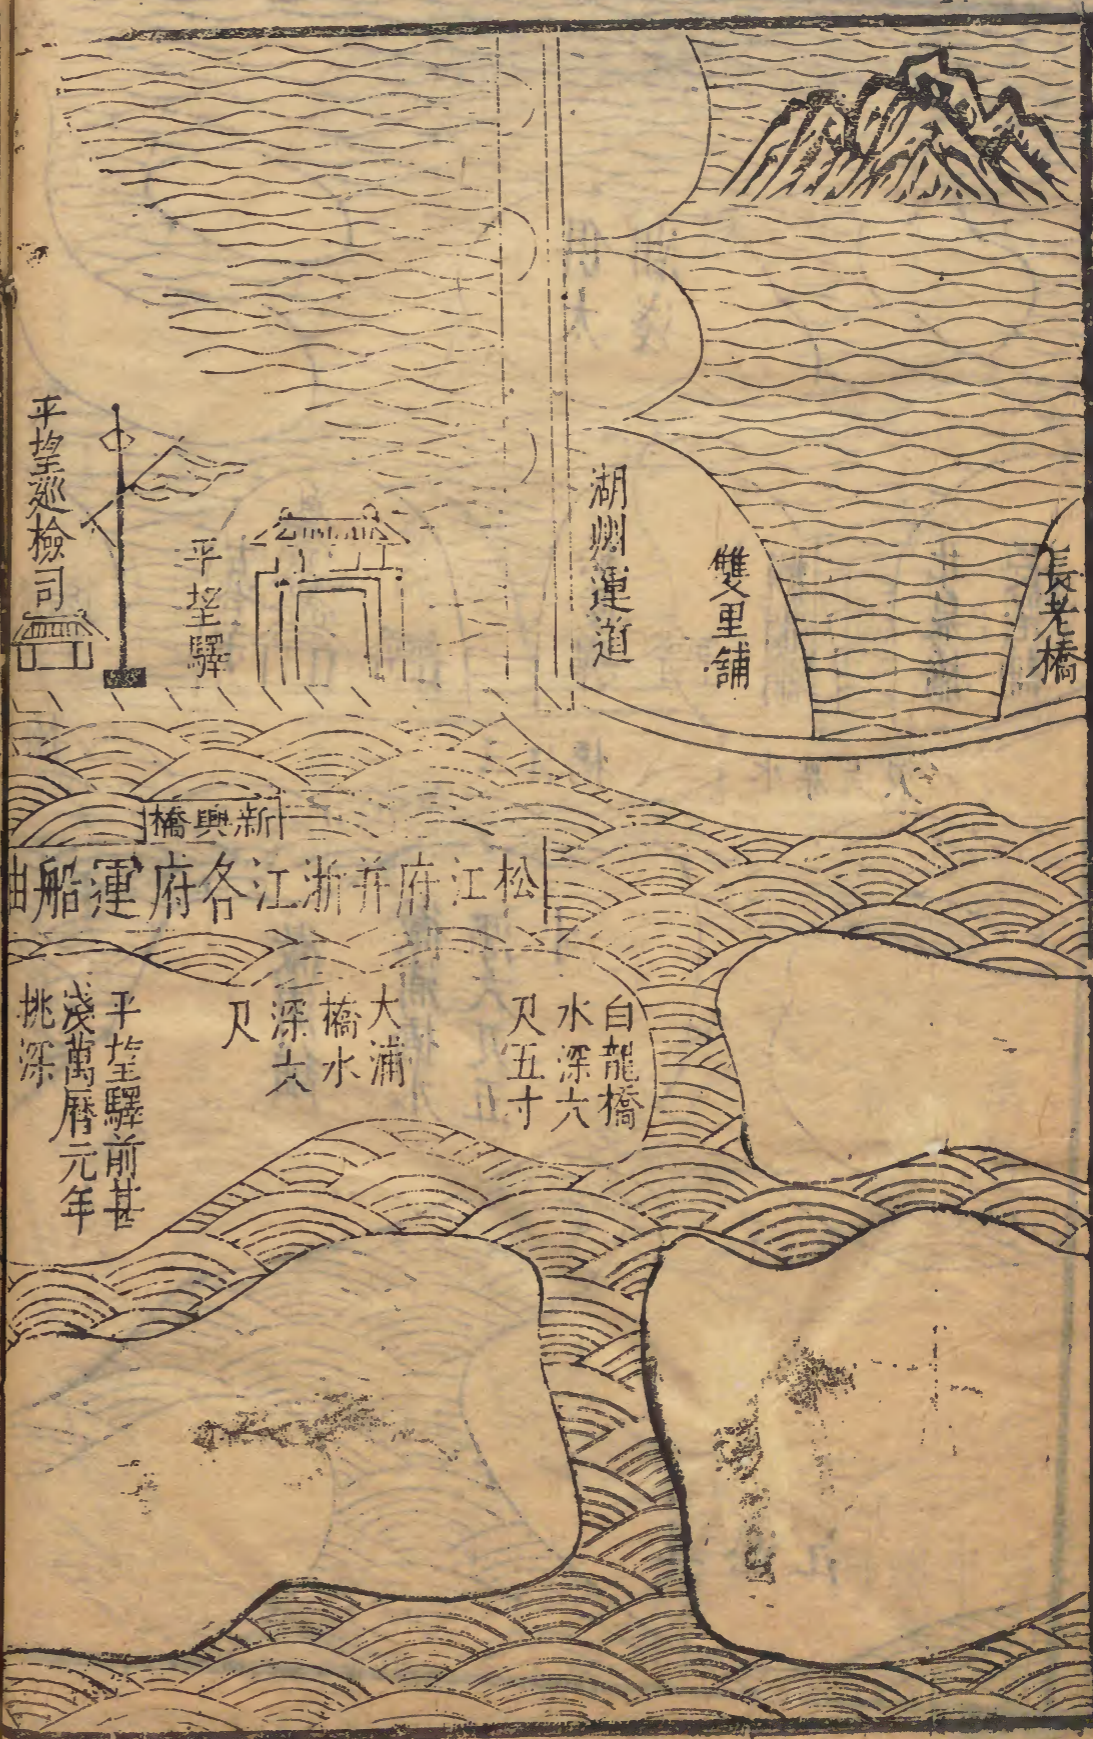 長老橋
雙里舗
湖州運道
平望驛
平望巡檢司
新興橋
松江府并浙江各府運船由
白龍橋
水深六
尺五寸
大浦
橋水
深六
尺
平望驛前甚
淺萬曆元年
挑深